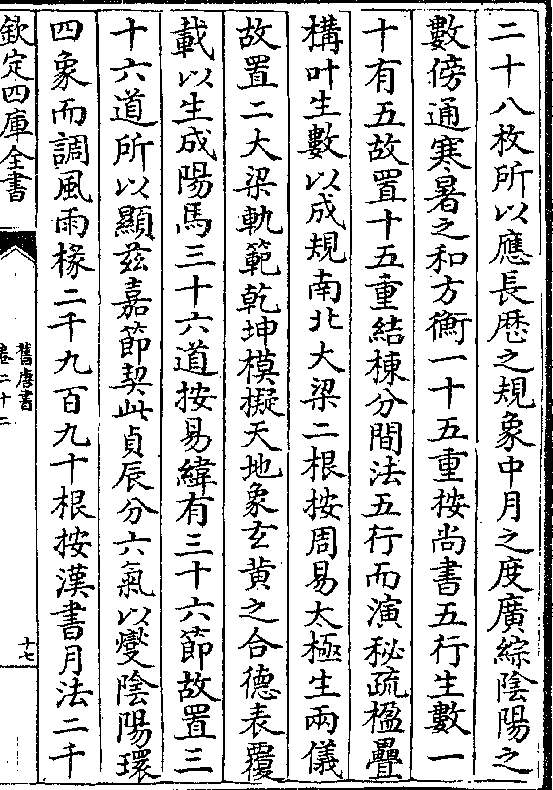 二十八枚所以應長厯之規象中月之度廣綜陰陽之
數傍通寒暑之和方衡一十五重按尚書五行生數一
十有五故置十五重結棟分間法五行而演秘疏楹疊
構叶生數以成規南北大梁二根按周易太極生兩儀
故置二大梁軌範乾坤模擬天地象玄黄之合德表覆
載以生成陽馬三十六道按易緯有三十六節故置三
十六道所以顯兹嘉節契此貞辰分六氣以爕陰陽環
四象而調風雨椽二千九百九十根按漢書月法二千
欽定四庫全書
舊唐書
卷二十二
十七